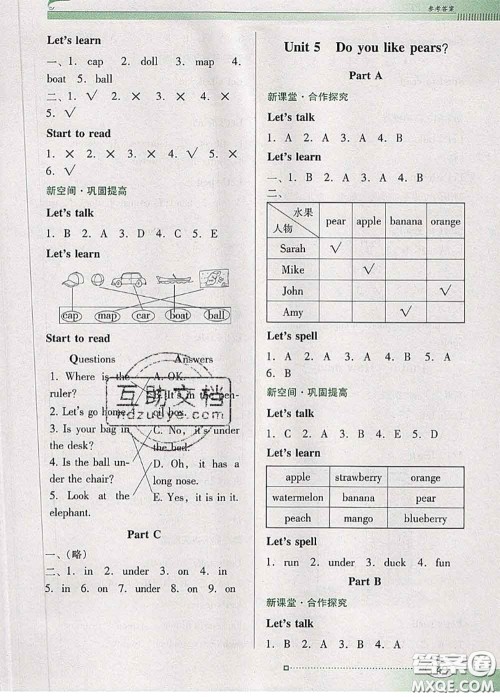 参考答案
Let's learn
一、1. cap 2. doll 3. map 4.
boat 5. ball
二、1. √ 2. × 3. × 4. ×
5. √
Start to read
1. × 2. × 3. × 4. √ 5. ×
6. √
新空间·巩固提高
Let's talk
1. B 2. A 3. D 4. C 5. E
Let's learn
cap map car boat ball
Start to read
Questions Answers
1. Where is the
ruler?
2. Let's go home.
3. Is your bag in
the desk?
4. Is the ball un-
der the chair?
5. Look at the
elephant.
A. OK.
B. It's in the pen-
cil box.
C. No, it's under
the bed.
D. Oh, it has a
long nose.
E. Yes, it is in it.
Part C
一、(略)
二、1. in 2. under 3. on 4. in
5. in 6. on 7. under 8. on 9. on
Unit 5 Do you like pears?
Part A
新课堂·合作探究
Let's talk
1. A 2. A 3. A 4. B
Let's learn
一、1. B 2. A 3. A 4. B
二、
水果
人物
pear apple banana orange
Sarah √
Mike √
John √
Amy √
Let's spell
1. A 2. A 3. B 4. B 5. A
6. B
新空间·巩固提高
Let's talk
1. C 2. A 3. B 4. E 5. D
Let's learn
apple strawberry orange
watermelon banana pear
peach mango blueberry
Let's spell
1. run 2. under 3. duck 4. fun
Part B
新课堂·合作探究
Let's talk
1. B 2. B 3. A 4. A 5. A
互助文档
hdzuoye.com
答案圈
MXQE.COM